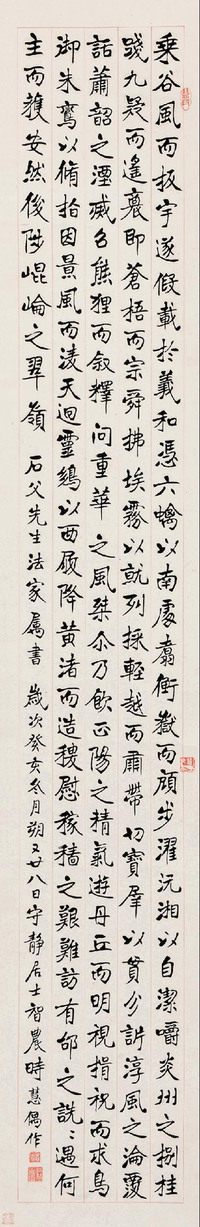 乘谷風而扳宇遂假載於羲和憑六螭以南處翥衡嶽而頎步濯沅湘以自潔嚼炎州之捌桂
踐九疑而遙裏即蒼梧而宗舜拂埃霧以就列採輕越而肅帶切寶犀以貫介訢淳風之淪覆
話蕭韶之湮滅召熊狸而敘釋問重華之風桀尒乃飲正陽之精氣遊丹丘而明視揖祝而求鳥
御朱鸞以脩指因景風而淩天迴靈鷁以西厎降黃渚而造稷慰稼穡之艱難訪有邰之詵〻遇何
主而獲安然後陟崐崘之翠嶺 石父先生法家屬書 歲次癸亥冬月朔又廿八日守靜居士智農時慧偶作